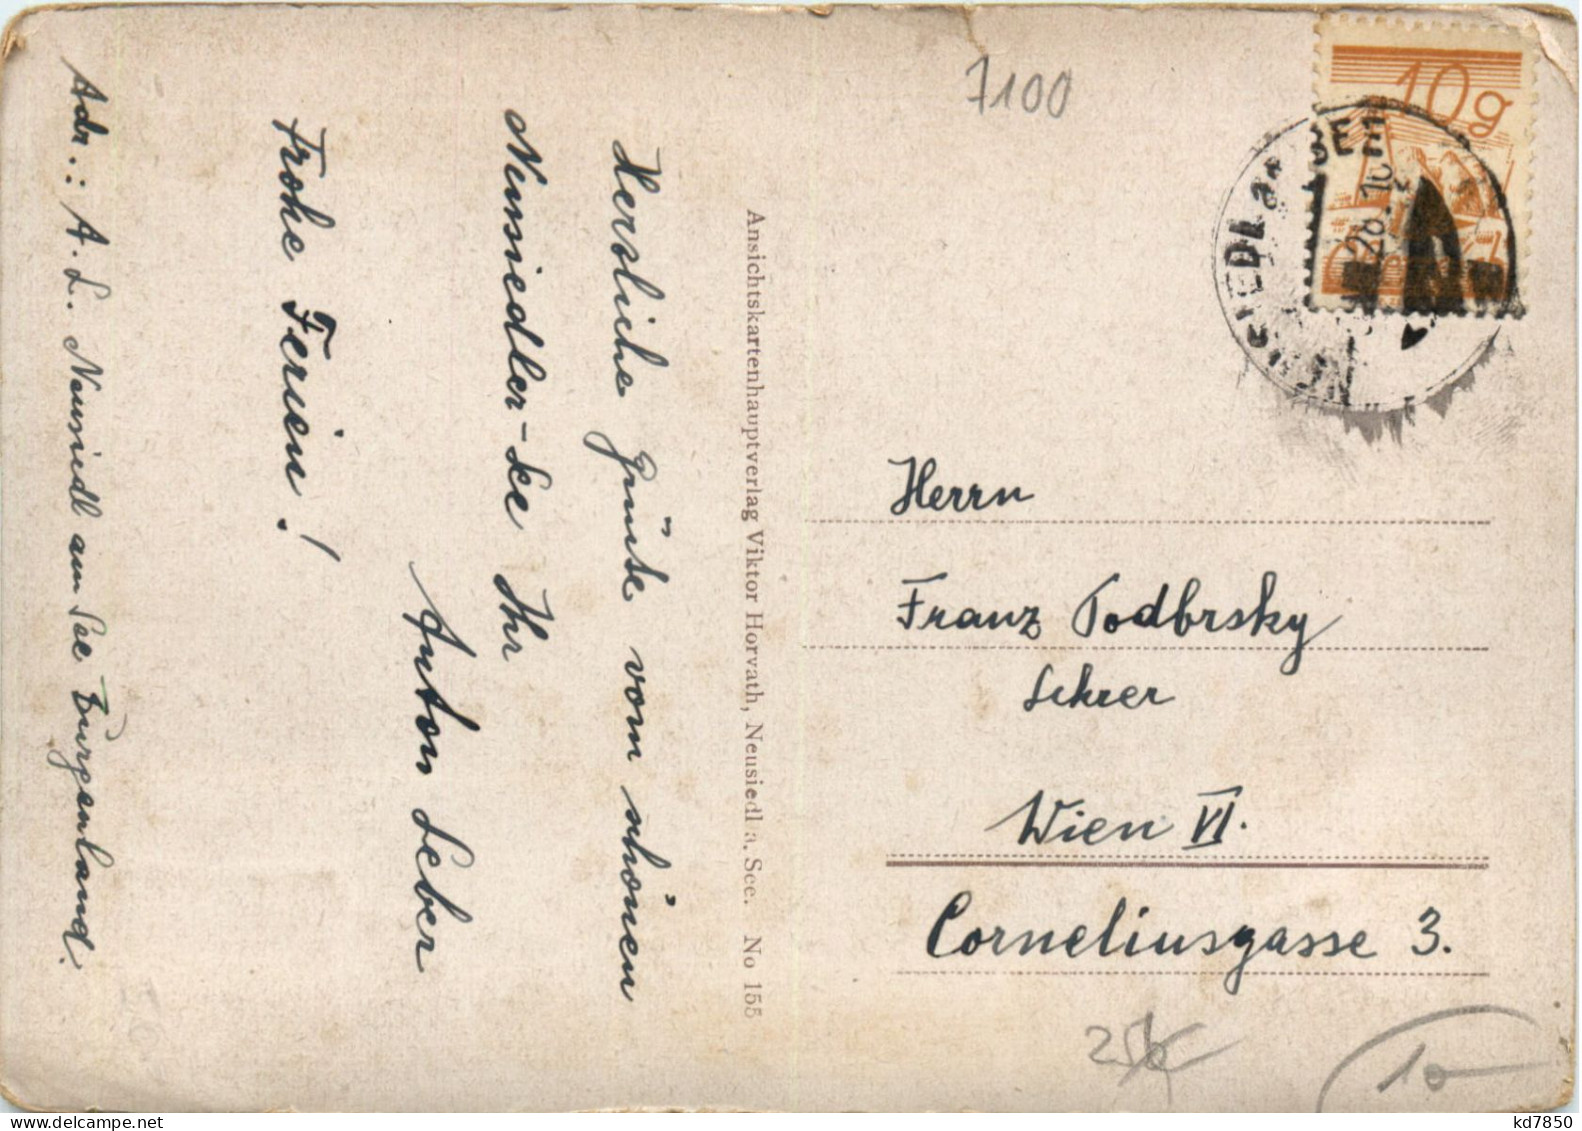 Herzliche Grüße vom schönen
Neusiedler-See Ihr
Anton Leber
Frohe Ferien!
Adr.: A. L. Neusiedl am See Burgenland.
Ansichtskartenhauptverlag Viktor Horvath, Neusiedl a. See. No 155
7100
10g
SIEDL a. SEE
Herrn
Franz Podbrsky
Lehrer
Wien VI.
Corneliusgasse 3.
10
oldthing.de
kd7850